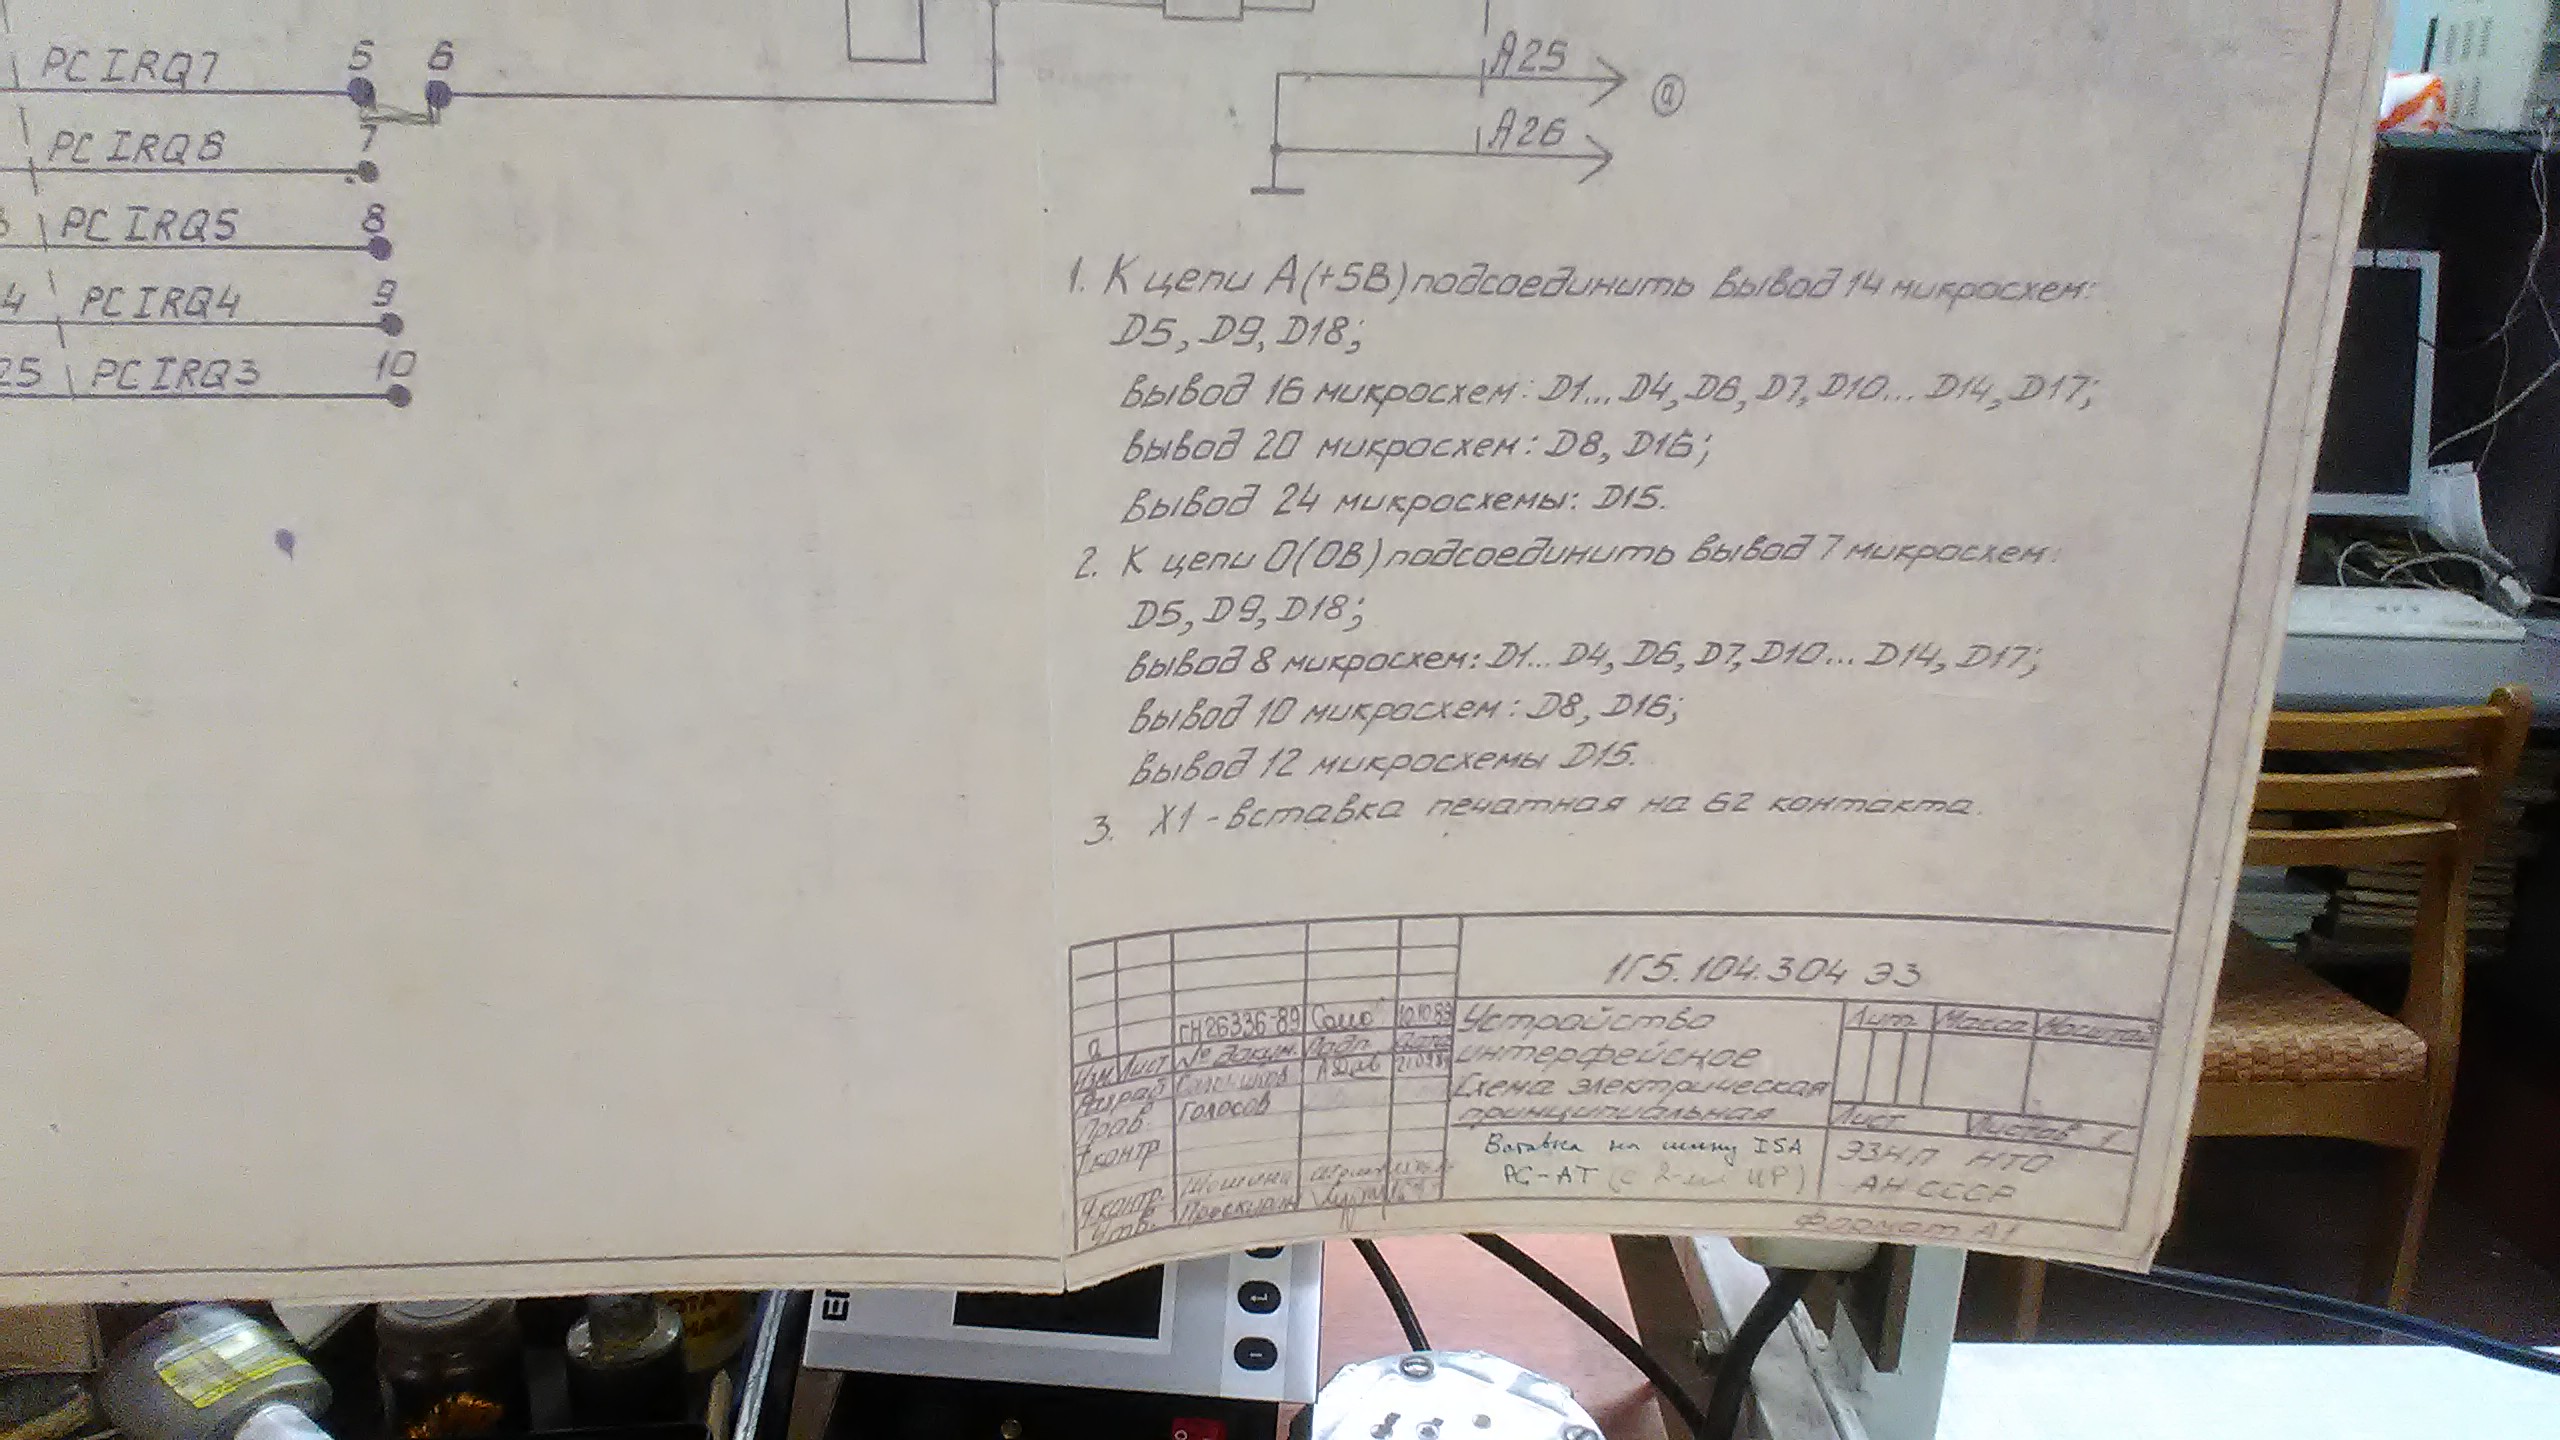 PC IRQ7 5 6
PC IRQ6 7
PC IRQ5 8
4 PC IRQ4 9
25 PC IRQ3 10
A25
a
A26
1. К цепи А(+5В) подсоединить вывод 14 микросхем:
D5, D9, D18;
вывод 16 микросхем: D1... D4, D6, D7, D10... D14, D17;
вывод 20 микросхем: D8, D16;
вывод 24 микросхемы: D15.
2. К цепи 0(0В) подсоединить вывод 7 микросхем:
D5, D9, D18;
вывод 8 микросхем: D1... D4, D6, D7, D10... D14, D17;
вывод 10 микросхем: D8, D16;
вывод 12 микросхемы D15.
3. X1 - вставка печатная на 62 контакта.
1Г5.104.304 Э3
а ГН26336-89
Изм Лист № докум. Подп. Дата
Разраб
Пров. Голосов
Т контр
Н.контр.
Утв.
Устройство
интерфейсное
Схема электрическая
принципиальная
Лит. Масса Масштаб
Лист Листов 1
Вставка на шину ISA
PC-AT
ЭЗНП НТО
АН СССР
Формат А1